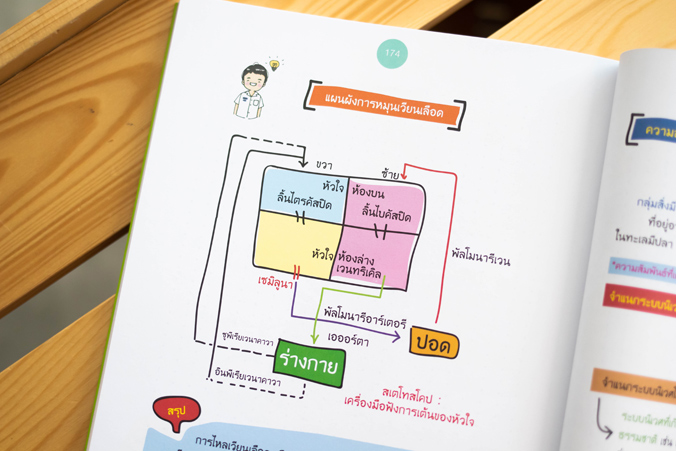 174
แผนผังการหมุนเวียนเลือด
ขวา
ซ้าย
หัวใจ ห้องบน
ลิ้นไตรคัสปิด
ลิ้นไบคัสปิด
หัวใจ ห้องล่าง
เวนทริเคิล
เซมิลูนา
พัลโมนารีเวน
พัลโมนารีอาร์เตอรี
เอออร์ตา
ปอด
ซุพีเรียเวนาคาวา
ร่างกาย
อินพีเรียเวนาคาวา
สเตโทสโคป :
เครื่องมือฟังการเต้นของหัวใจ
สรุป
การไหลเวียนเลือด
กลุ่มสิ่งมี
ที่อยู่อา
ในทะเลมีปลา
"ความสัมพันธ์ที่
จำแนกระบบนิเว
จำแนกระบบนิเวศ
ระบบนิเวศที่เ
ธรรมชาติ เช่น